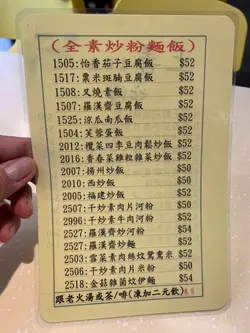 (全素炒粉麵飯)
1505:怡香茄子豆腐飯 $52
1517:粟米斑腩豆腐飯 $52
1508:叉燒素飯 $52
1507:羅漢齋豆腐飯 $52
1525:涼瓜南瓜飯 $52
1504:芙蓉蛋飯 $52
2012:欖菜四季豆肉鬆炒飯 $52
2016:香春菜雞粒雜菜炒飯 $52
2007:揚州炒飯 $50
2010:西炒飯 $50
2005:福建炒飯 $52
2507:干炒素肉片河粉 $50
2996:干炒素牛肉河粉 $52
2527:羅漢齋炒河粉 $54
2527:羅漢齋炒麵 $52
2503:雪菜素肉絲炆鴛鴦米 $52
2506:干炒素肉片米粉 $50
2518:金菇雜菌炆伊麵 $54
跟老火湯或茶/啡(凍加二元飲)